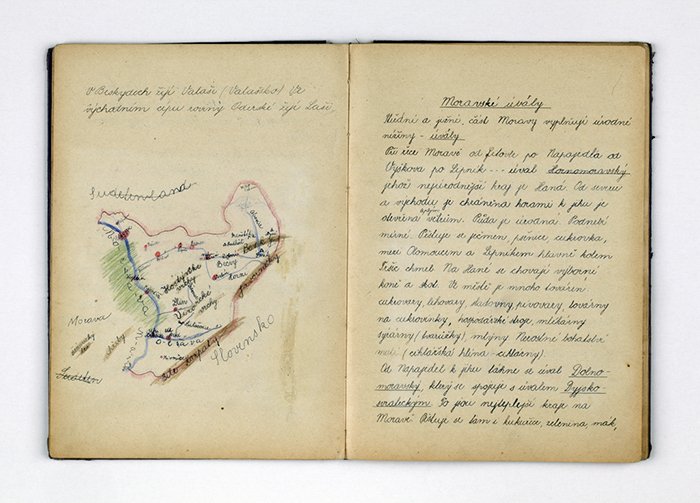 V Beskydech žijí Valaši (Valašsko) Ve
východním cípu roviny Oderské žijí Laši.
Sudetenland
Hostýnské
vrchy
Vizovické
vrchy
Javorníky
Bílé Karpaty
Slovensko
Morava
Moravské úvaly
Střední a jižní část Moravy vyplňují úrodné
nížiny - úvaly
Při řece Moravě od Litovle po Napajedla od
Vyškova po Lipník ... úval Hornomoravský
jehož nejúrodnější kraj je Haná. Od severu
a východu je chráněna horami k jihu je
otevřená teplým větrům. Půda je úrodná. Podnebí
mírné. Pěstuje se ječmen, pšenice, cukrovka,
mezi Olomoucem a Lipníkem hlavně kolem
Tršic chmel. Na Hané se chovají výborné
koně a skot. Ve městě je mnoho továren
cukrovary, lihovary, sladovny, pivovary továrny
na cukrovinky, hospodářské stroje, mlékárny
sýrárny (tvarůžky) mlýny Nerostné bohatství
není (cihlářská hlína - cihlárny).
Od Napajedel k jihu táhne se úval Dolno-
moravský, který se spojuje s úvalem Dyjsko-
svrateckým To jsou nejteplejší kraje na
Moravě Pěstuje se tam i kukuřice, zelenina, mák,